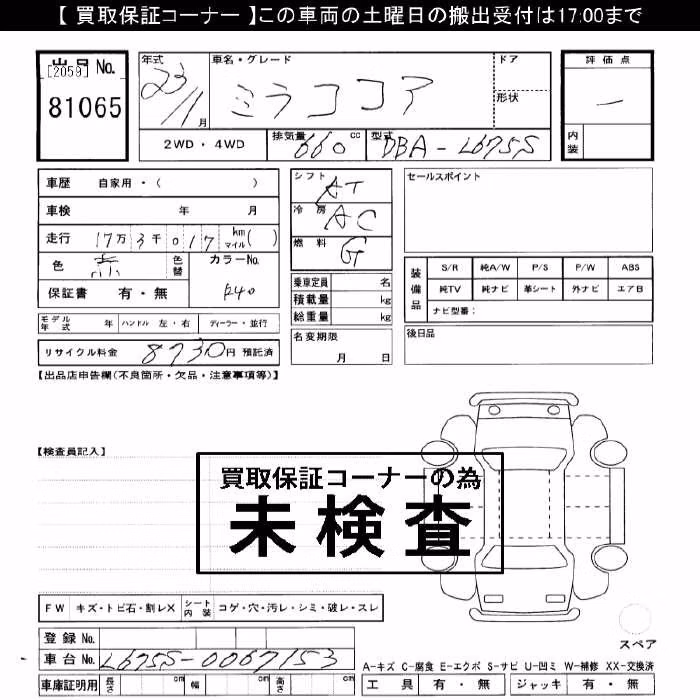 【 買取保証コーナー 】この車両の土曜日の搬出受付は17:00まで
出品 No.
[2059]
81065
年式
23/1月
車名・グレード
ミラココア
ドア
形状
評価点
一
内装
2WD・4WD
排気量 660 cc
型式 DBA-L675S
車歴 自家用・( )
車検 年 月
走行 17万3千017 km マイル ( )
色 赤 色替
カラーNo.
R40
保証書 有・無
シフト AT
冷房 AC
燃料 G
セールスポイント
乗車定員 名
積載量 kg
総重量 kg
装備品
S/R 純A/W P/S P/W ABS
純TV 純ナビ 革シート 外ナビ エアB
ナビ型番:
モデル年式 年 ハンドル 左・右 ディーラー・並行
名変期限
月 日
後日品
リサイクル料金 8730円 預託済
【出品店申告欄(不良箇所・欠品・注意事項等)】
【検査員記入】
買取保証コーナーの為
未検査
FW キズ・トビ石・割レX シート内装 コゲ・穴・汚レ・シミ・破レ・スレ
スペア
登録 No.
車台 No. L675S-0067153
A-キズ C-腐食 E-エクボ S-サビ U-凹ミ W-補修 XX-交換済
車庫証明用 長さ cm 幅 cm 高さ cm
工具 有・無 ジャッキ 有・無